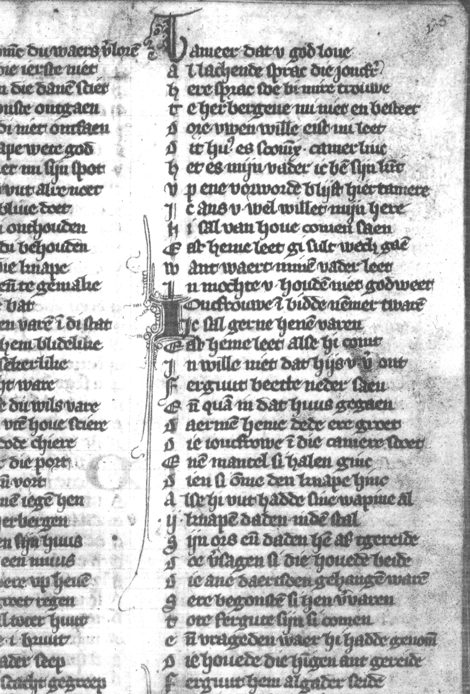 ome du waers vlorē
die ierste niet
n die danē sciet
onste ontgaen
di niet ontfaen
ape wete god
er mi sijn spot
vut alre neet
bliue doet
onthouden
du behouden
die knape
en te gemake
bat
en varē ī di stat
hem blidelike
sekerlike
ht ware
e du wils vare
vtē houe sciere
ode chiere
die port
n vort
nē iegē hen
herbergen
en sijn huus
een muus
were vp heuē
groet regen
l toter huut
e i bruut
ader step
stocht gegreep
125
Tameer dat v god loue
al lachende sprac die joncfr
here sprac soe bi mire trouwe
te herbergene nu niet en besteet
doe vwen wille eist mi leet
dit hu es scone camerline
het es mijn vader ic bē sijn kint
vp ene vorworde blijft hier tamere
Ic ans v wel willet mijn here
hi sal van houe comen saen
Est heme leet gi sult wech gaē
want waert minē vader leet
In mochte v houdē niet godweet
Ioncfrouwe ī bidde nemet twarē
Ic sal gerne henē varen
Est heme leet alse hi comt
In wille niet dat hijs v vont
ferguut beette neder saen
En quā in dat huus gegaen
daer mē heme dede ere groet
die ioncfrowe ī die camere scoet
Enē mantel si halen ginc
dien si ōme den knape hinc
Alse hi vut hadde sine wapine al
ij knapen daden indē stal
Sijn ors en daden hē as gereide
doe vsagen si die houede beide
die ane daer isden gehangē warē
sere begonstē si hen vvaren
tote fergute sijn si comen
en vrageden waer hi hadde genom
die houede die hingen ant gereide
ferguut hem algader seide